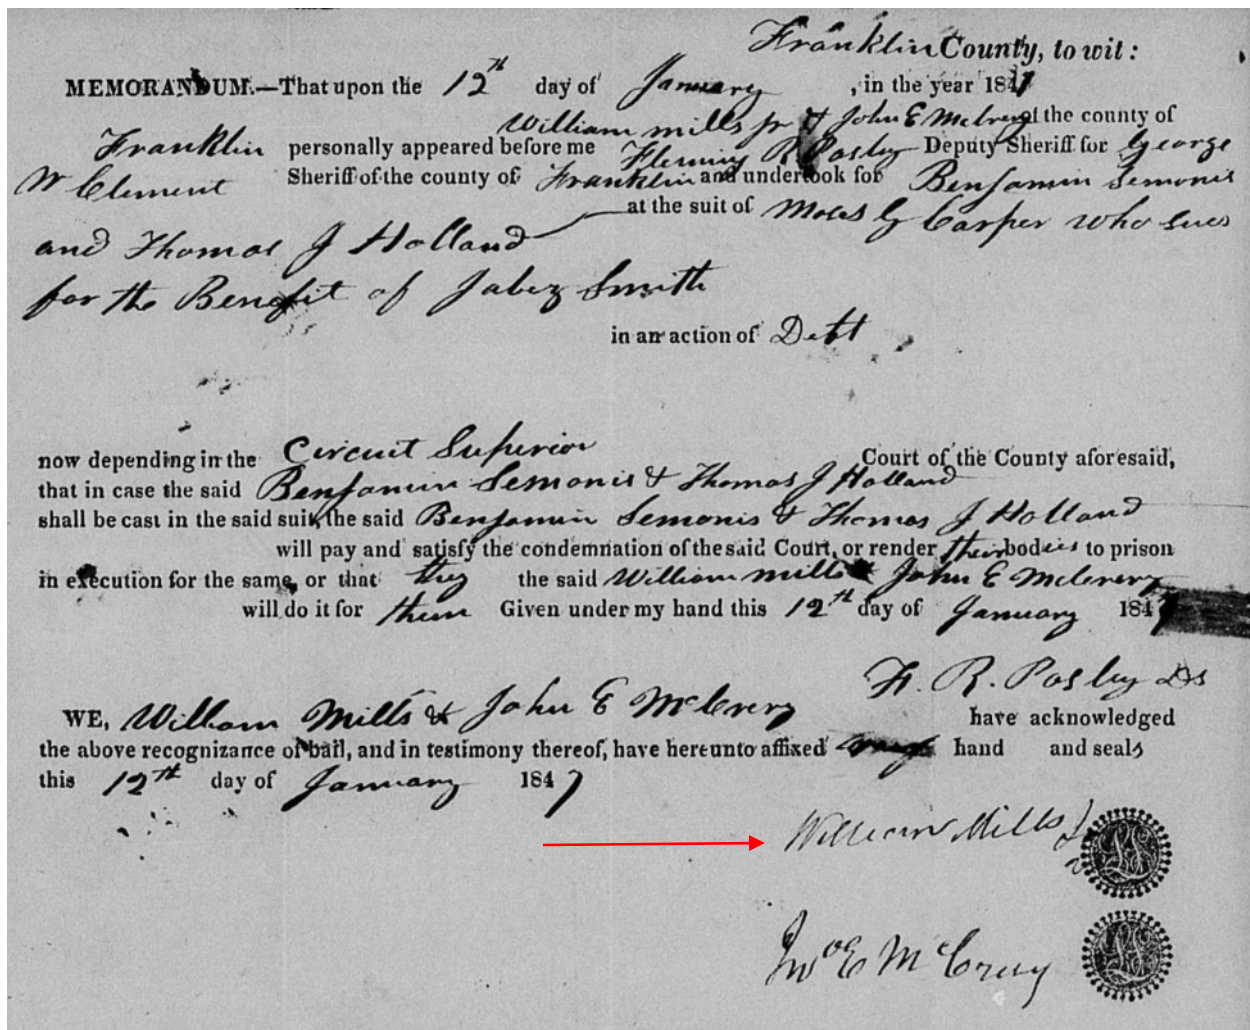 Franklin County, to wit:
MEMORANDUM.—That upon the 12th day of January, in the year 1847
William Mills jr & John E McCrery of the county of
Franklin personally appeared before me Fleming R Posley Deputy Sheriff for George
W Clement Sheriff of the county of Franklin and undertook for Benjamin Semonis
at the suit of Moses G Carper who sues
and Thomas J Holland
for the Benefit of Jabez Smith
in an action of Debt
now depending in the Circuit Superior Court of the County aforesaid,
that in case the said Benjamin Semonis & Thomas J Holland
shall be cast in the said suit, the said Benjamin Semonis & Thomas J Holland
will pay and satisfy the condemnation of the said Court, or render their bodies to prison
in execution for the same, or that they the said William Mills & John E McCrery
will do it for them Given under my hand this 12th day of January 1847
F. R. Posley DS
WE, William Mills & John E McCrery have acknowledged
the above recognizance of bail, and in testimony thereof, have hereunto affixed hand and seals
this 12th day of January 1847
William Mills Jr
Jno E McCrery